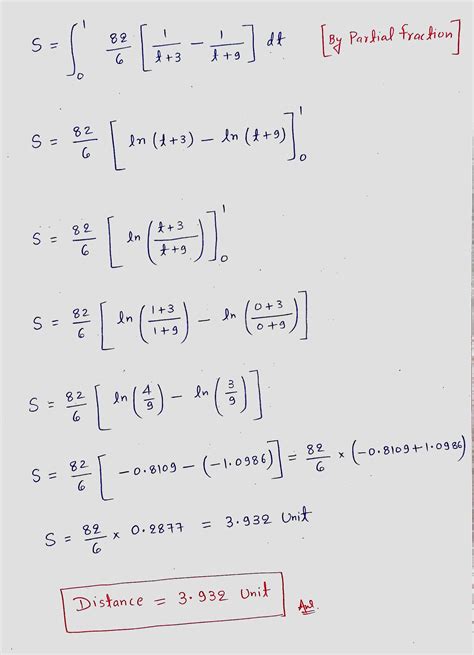 S = ∫₀¹ 82/6 [ 1/(t+3) − 1/(t+9) ] dt [By Partial fraction]
S = 82/6 [ ln (t+3) − ln (t+9) ]₀¹
S = 82/6 [ ln ( (t+3)/(t+9) ) ]₀¹
S = 82/6 [ ln ( (1+3)/(1+9) ) − ln ( (0+3)/(0+9) ) ]
S = 82/6 [ ln (4/9) − ln (3/9) ]
S = 82/6 [ −0.8109 − (−1.0986) ] = 82/6 × (−0.8109+1.0986)
S = 82/6 × 0.2877 = 3.932 Unit
Distance = 3.932 Unit Ans.